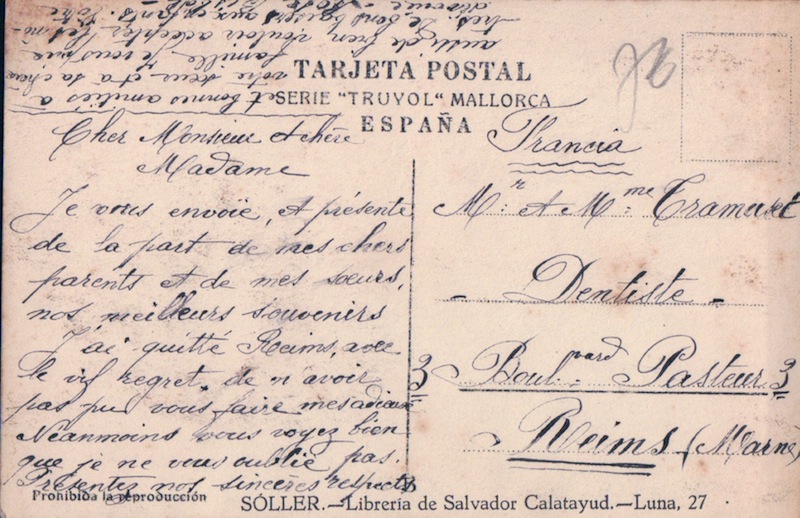 TARJETA POSTAL
SERIE "TRUYOL" MALLORCA
ESPAÑA
Cher Monsieur et chère
Madame
Je vous envoie, et présente
de la part de mes chers
parents et de mes soeurs,
nos meilleurs souvenirs
J'ai quitté Reims, avec
le vif regret, de n'avoir
pas pu vous faire mes adieux
Néanmoins vous voyez bien
que je ne vous oublie pas.
Présentez nos sincères respects
et bonnes amitiés à
votre soeur et a sa chère
famille. Je vous prie
aussi, de bien vouloir accepter
très de bons baisers aux enfants. Votre
Francia
Mr. et Mme. Tramuset
- Dentiste -
3 - Boulvard Pasteur 3
- Reims (Marne)
Prohibida la reproducción
SÓLLER.—Librería de Salvador Calatayud.—Luna, 27